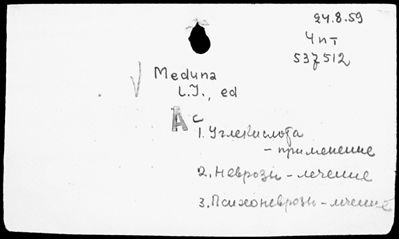 24.8.59
4 пт
537512
Meduna
L.J., ed
A c
1. Углекислота
- применение
2. Неврозы - лечение
3. Психоневрозы - лечение